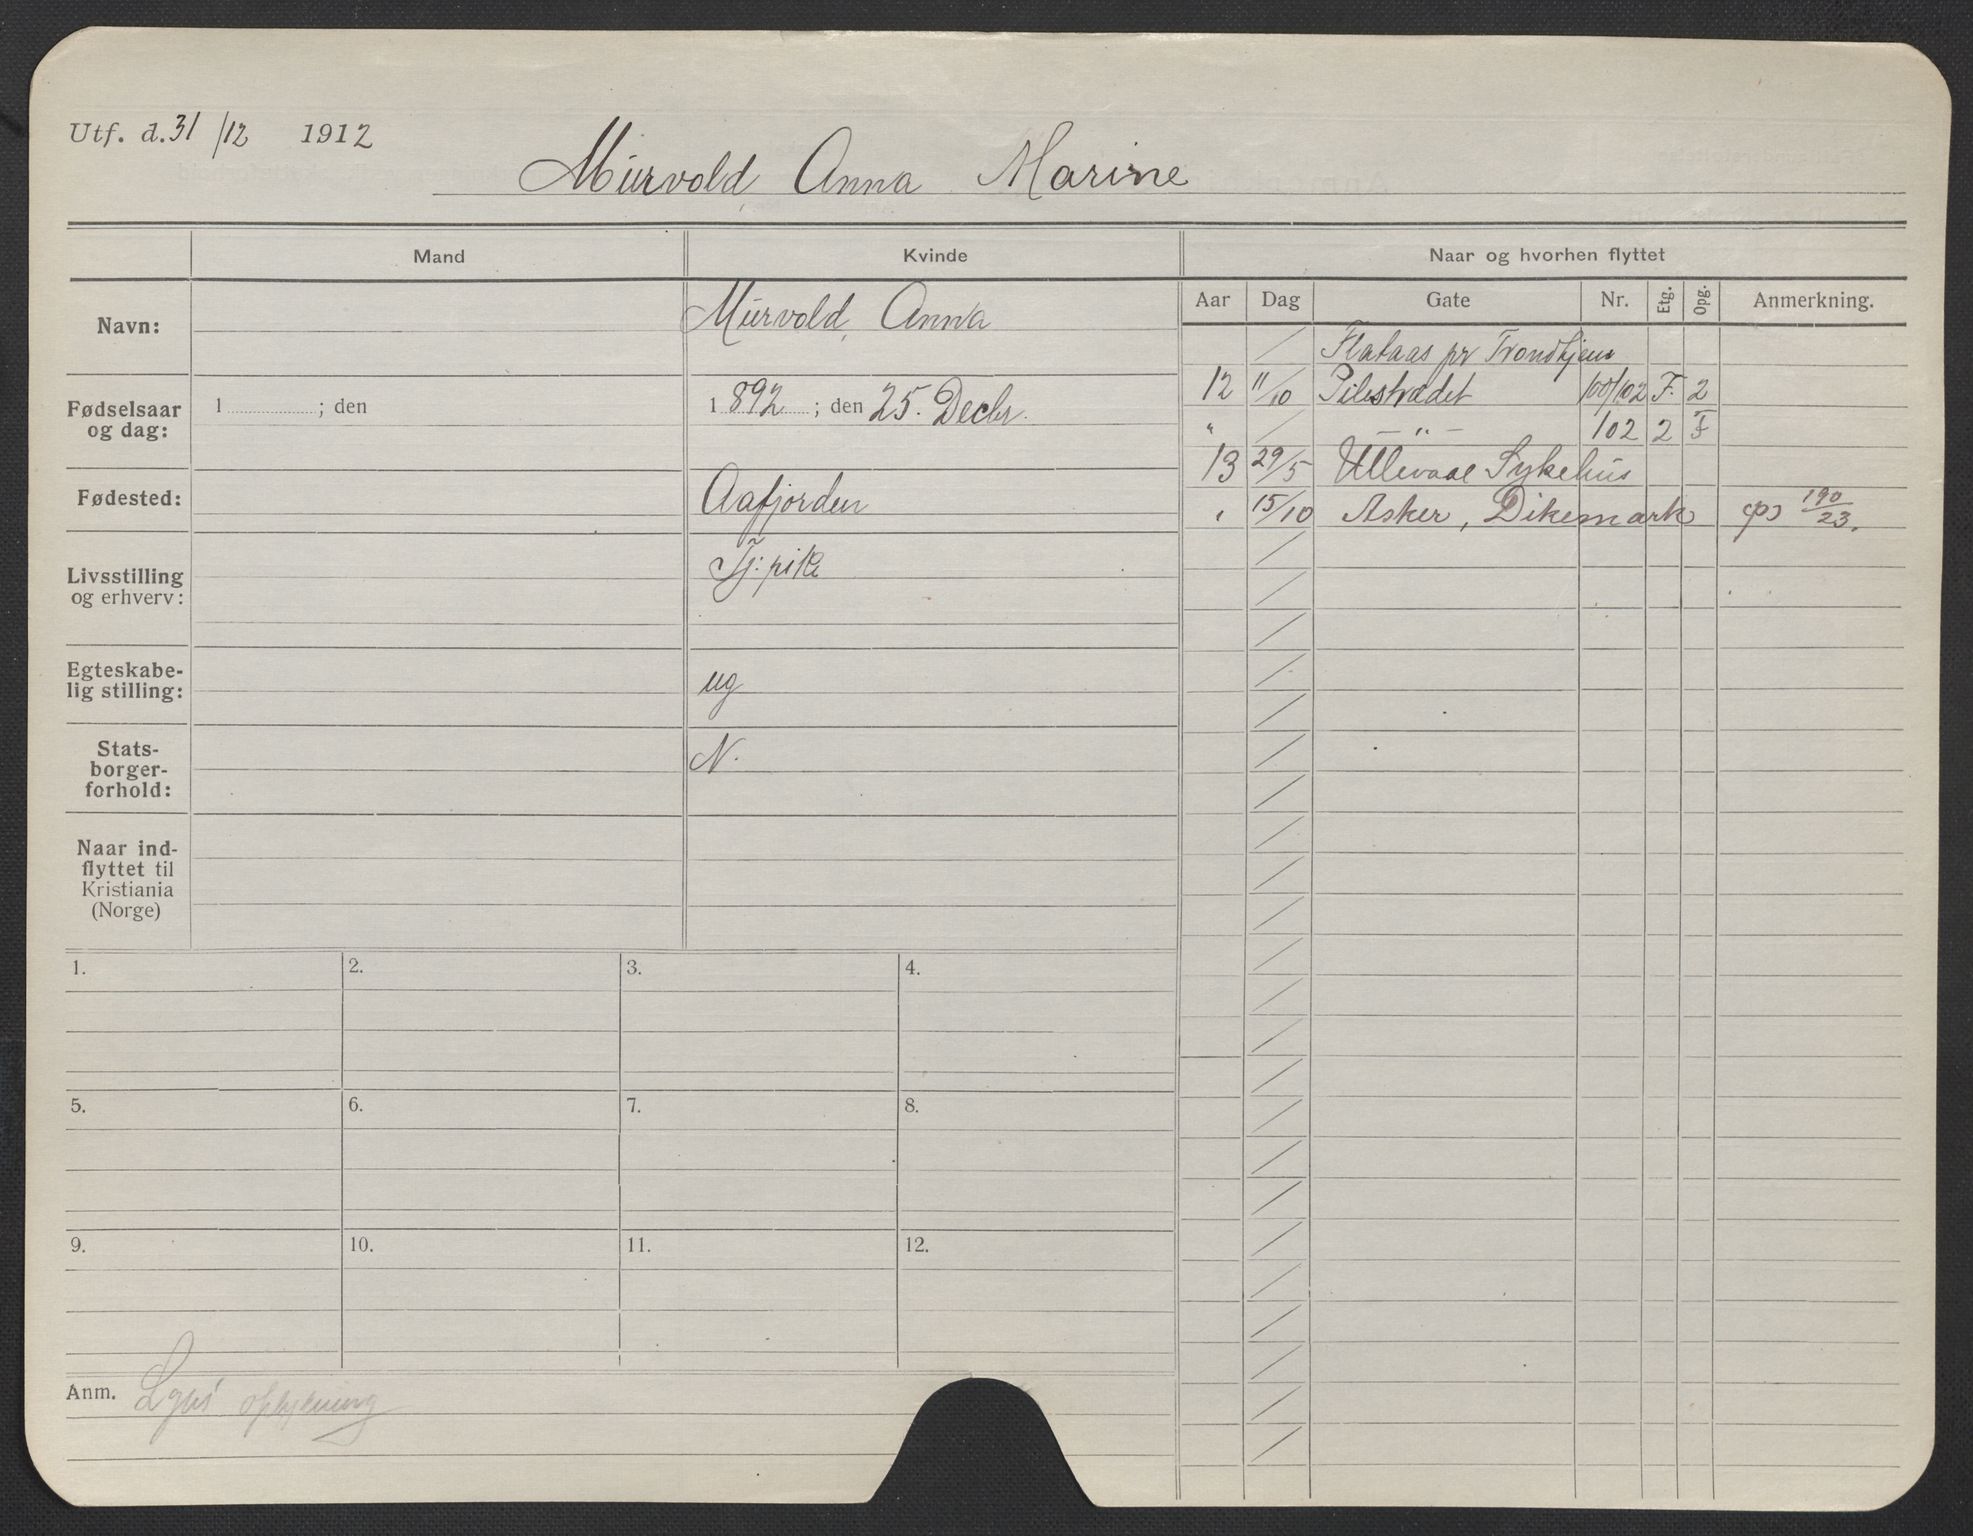 Utf. d. 31/12 1912
Murvold, Anna Marine
Mand Kvinde Naar og hvorhen flyttet
Aar Dag Gate Nr. Etg. Opg. Anmerkning.
Navn: Murvold, Anna
Flataas pr Trondhjem
12 11/10 Pilestrædet 100/102 F. 2
Fødselsaar og dag: 1 ; den 1892 ; den 25. Decbr.
" / — " — 102 2 F
13 29/5 Ullevaal Sykehus
Fødested: Aafjorden
" 15/10 Asker, Dikemark 190/23.
Livsstilling
og erhverv: Tj: pike
Egteskabe-
lig stilling: ug
Stats-
borger-
forhold: N.
Naar ind-
flyttet til
Kristiania
(Norge)
1. 2. 3. 4.
5. 6. 7. 8.
9. 10. 11. 12.
Anm.